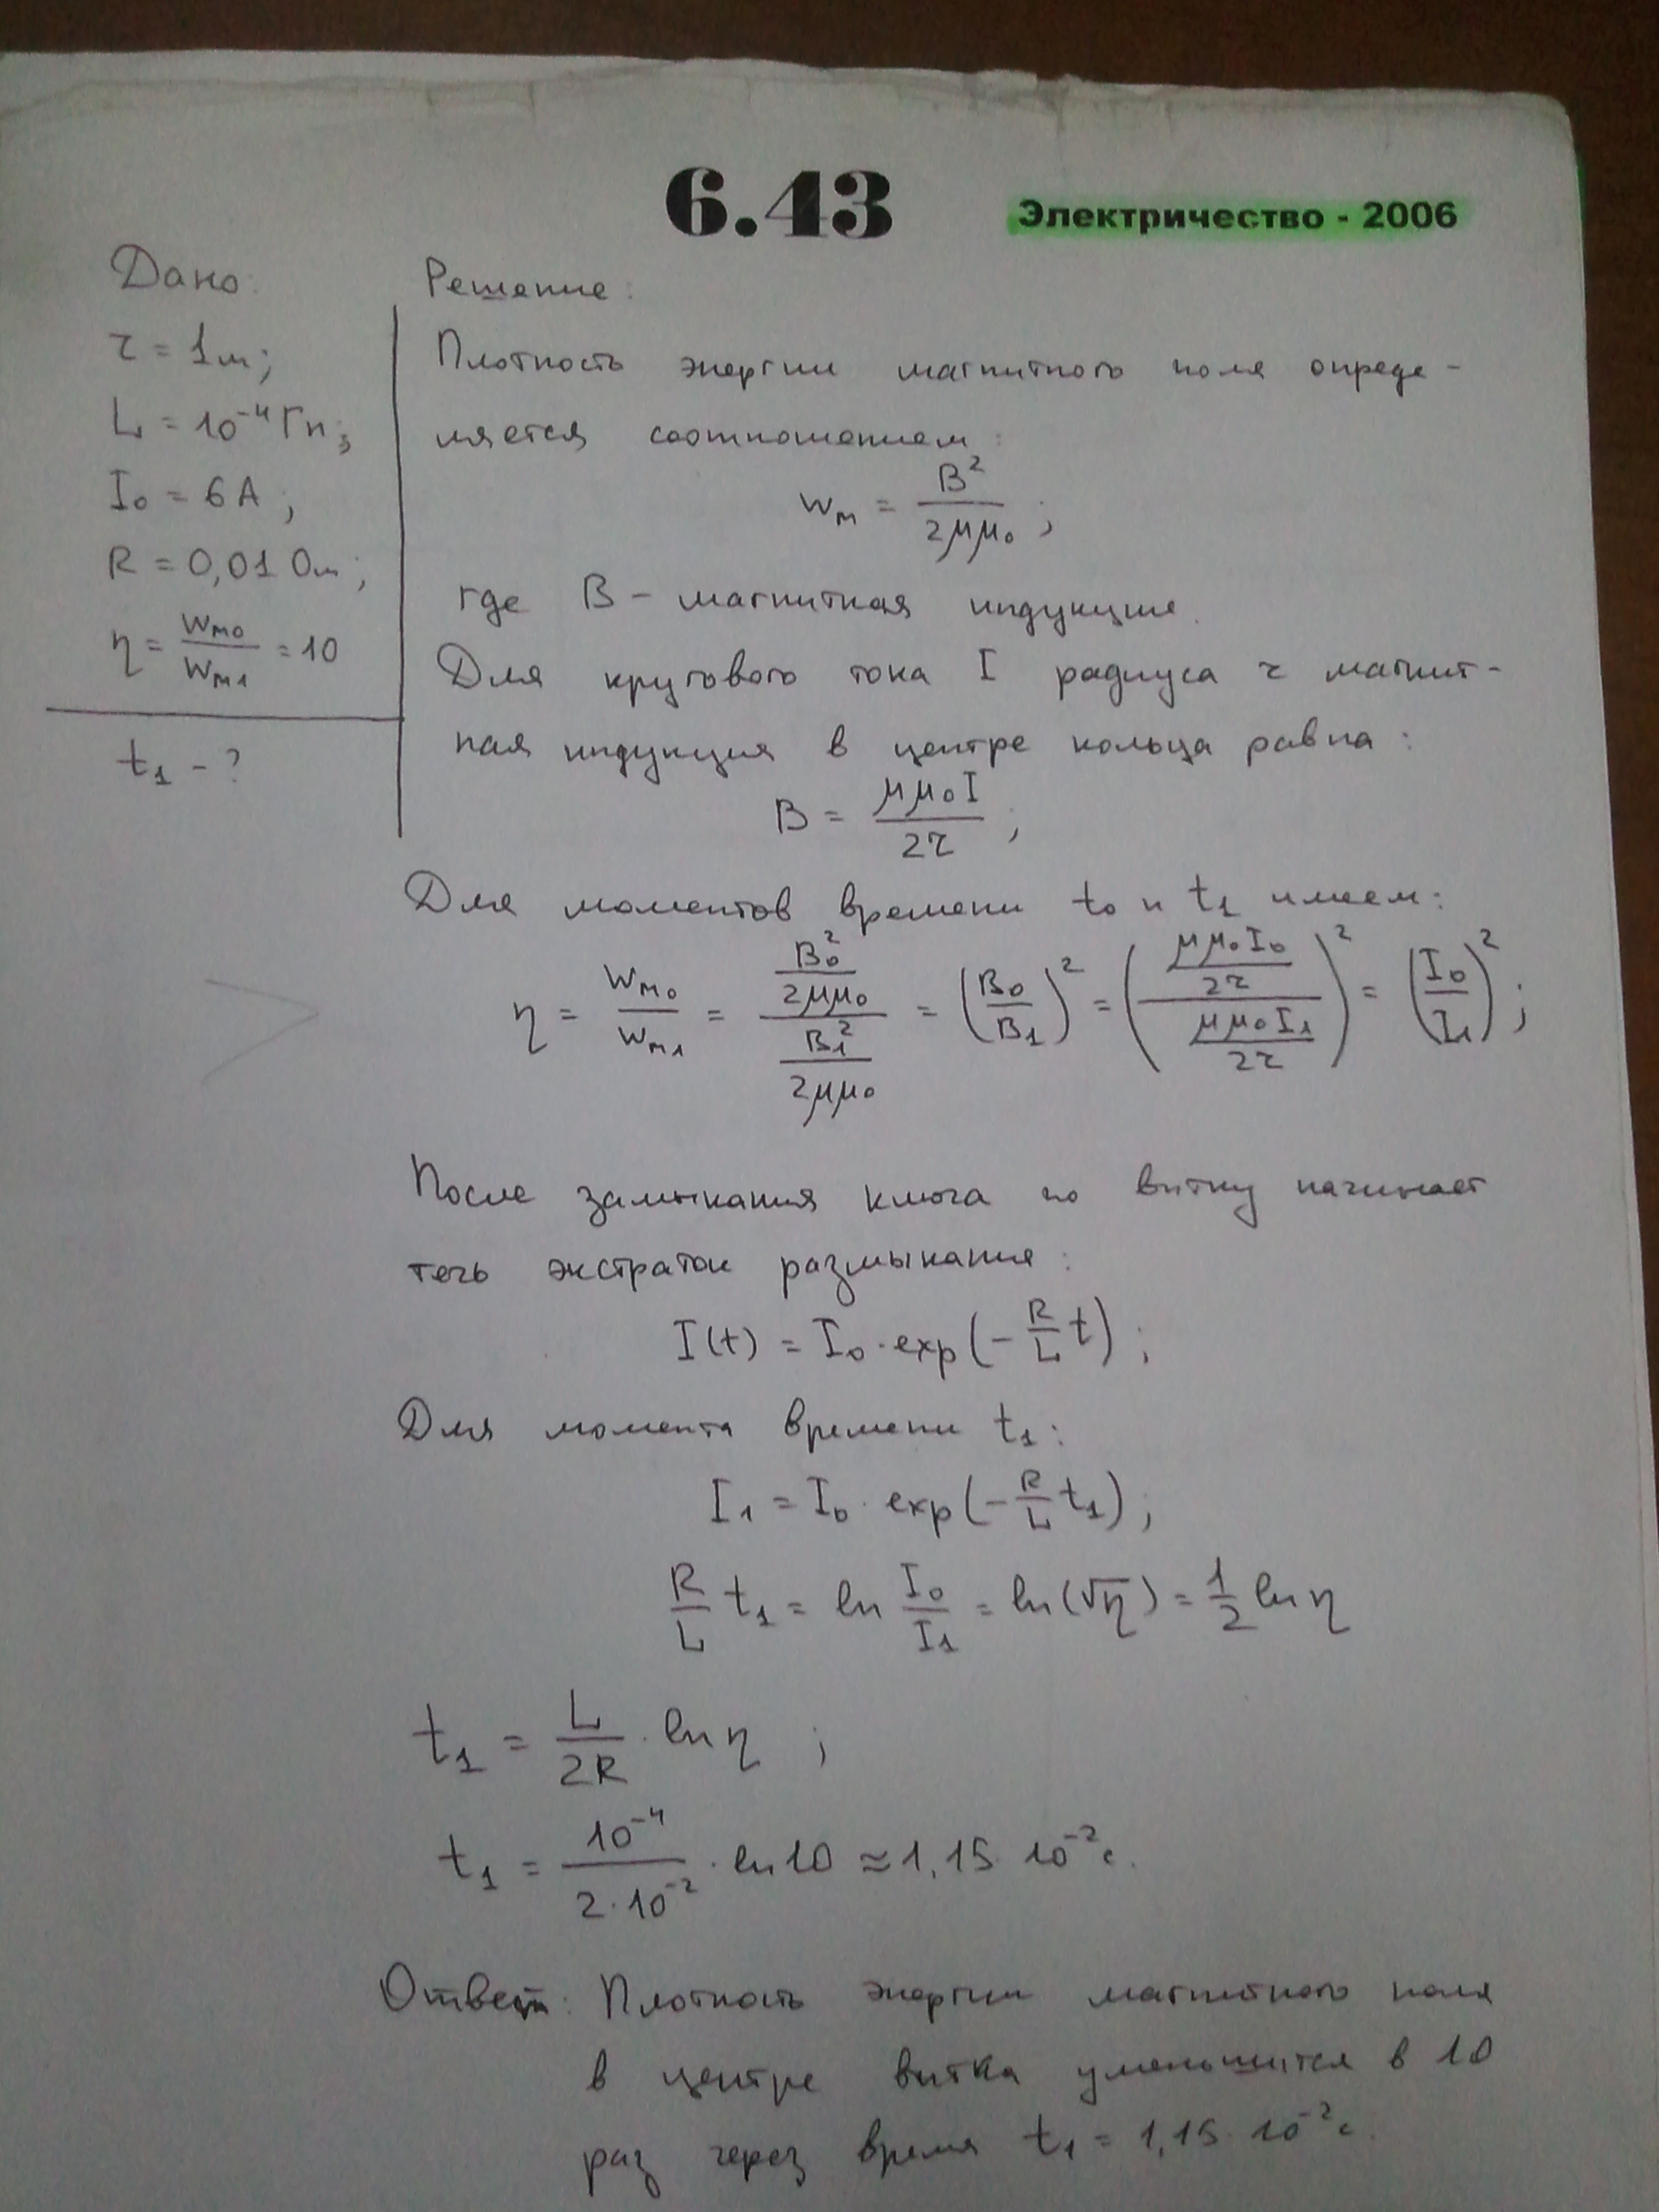 6.43
Электричество - 2006
Дано:
r = 1 м;
L = 10⁻⁴ Гн;
I₀ = 6 А;
R = 0,01 Ом;
η = wм₀/wм₁ = 10
t₁ - ?
Решение:
Плотность энергии магнитного поля опреде-
ляется соотношением:
wм = B²/2μμ₀;
где B – магнитная индукция.
Для кругового тока I радиуса r магнит-
ная индукция в центре кольца равна:
B = μμ₀I/2r;
Для моментов времени t₀ и t₁ имеем:
η = wм₀/wм₁ = (B₀²/2μμ₀)/(B₁²/2μμ₀) = (B₀/B₁)² = ((μμ₀I₀/2r)/(μμ₀I₁/2r))² = (I₀/I₁)²;
После замыкания ключа по витку начинает
течь экстраток размыкания:
I(t) = I₀·exp(-R/L t);
Для момента времени t₁:
I₁ = I₀·exp(-R/L t₁);
R/L t₁ = ln I₀/I₁ = ln(√η) = 1/2 ln η
t₁ = L/2R · ln η;
t₁ = 10⁻⁴/2·10⁻² · ln 10 ≈ 1,15·10⁻² с.
Ответ: Плотность энергии магнитного поля
в центре витка уменьшится в 10
раз через время t₁ = 1,15·10⁻² с.